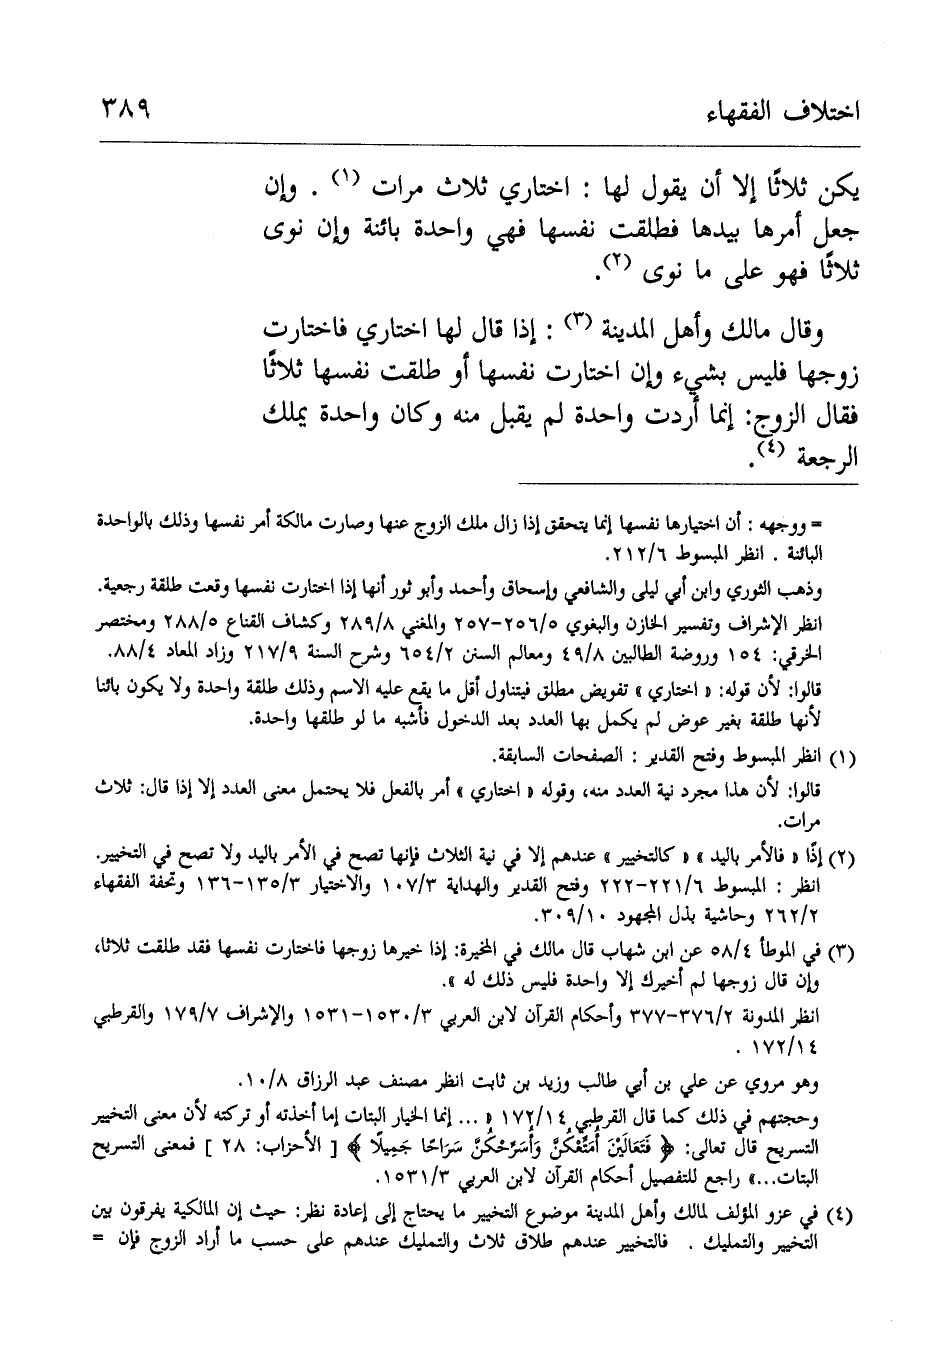 اختلاف الفقهاء
٣٨٩
يكن ثلاثًا إلا أن يقول لها : اختاري ثلاث مرات (١) . وإن
جعل أمرها بيدها فطلقت نفسها فهي واحدة بائنة وإن نوى
ثلاثًا فهو على ما نوى (٢).
وقال مالك وأهل المدينة (٣) : إذا قال لها اختاري فاختارت
زوجها فليس بشيء وإن اختارت نفسها أو طلقت نفسها ثلاثًا
فقال الزوج: إنما أردت واحدة لم يقبل منه وكان واحدة يملك
الرجعة (٤).
= ووجهه : أن اختيارها نفسها إنما يتحقق إذا زال ملك الزوج عنها وصارت مالكة أمر نفسها وذلك بالواحدة
البائنة . انظر المبسوط ٢١٢/٦.
وذهب الثوري وابن أبي ليلى والشافعي وإسحاق وأحمد وأبو ثور أنها إذا اختارت نفسها وقعت طلقة رجعية.
انظر الإشراف وتفسير الخازن والبغوي ٢٥٦/٥-٢٥٧ والمغني ٢٨٩/٨ وكشاف القناع ٢٨٨/٥ ومختصر
الخرقي: ١٥٤ وروضة الطالبين ٤٩/٨ ومعالم السنن ٦٥٤/٢ وشرح السنة ٢١٧/٩ وزاد المعاد ٨٨/٤.
قالوا: لأن قوله: « اختاري » تفويض مطلق فيتناول أقل ما يقع عليه الاسم وذلك طلقة واحدة ولا يكون بائنا
لأنها طلقة بغير عوض لم يكمل بها العدد بعد الدخول فأشبه ما لو طلقها واحدة.
(١) انظر المبسوط وفتح القدير : الصفحات السابقة.
قالوا: لأن هذا مجرد نية العدد منه، وقوله « اختاري » أمر بالفعل فلا يحتمل معنى العدد إلا إذا قال: ثلاث
مرات.
(٢) إذًا « فالأمر باليد » « كالتخيير » عندهم إلا في نية الثلاث فإنها تصح في الأمر باليد ولا تصح في التخيير.
انظر : المبسوط ٢٢١/٦-٢٢٢ وفتح القدير والهداية ١٠٧/٣ والاختيار ١٣٥/٣-١٣٦ وتحفة الفقهاء
٢٦٢/٢ وحاشية بذل المجهود ٣٠٩/١٠.
(٣) في الموطأ ٥٨/٤ عن ابن شهاب قال مالك في المخيرة: إذا خيرها زوجها فاختارت نفسها فقد طلقت ثلاثا،
وإن قال زوجها لم أخيرك إلا واحدة فليس ذلك له ».
انظر المدونة ٣٧٦/٢-٣٧٧ وأحكام القرآن لابن العربي ١٥٣٠/٣-١٥٣١ والإشراف ١٧٩/٧ والقرطبي
١٧٢/١٤ .
وهو مروي عن علي بن أبي طالب وزيد بن ثابت انظر مصنف عبد الرزاق ١٠/٨.
وحجتهم في ذلك كما قال القرطبي ١٧٢/١٤ « ... إنما الخيار البتات إما أخذته أو تركته لأن معنى التخيير
التسريح قال تعالى: ﴿ فَتَعَالَيْنَ أُمَتِّعْكُنَّ وَأُسَرِّحْكُنَّ سَرَاحًا جَمِيلًا ﴾ [ الأحزاب: ٢٨ ] فمعنى التسريح
البتات...» راجع للتفصيل أحكام القرآن لابن العربي ١٥٣١/٣.
(٤) في عزو المؤلف لمالك وأهل المدينة موضوع التخيير ما يحتاج إلى إعادة نظر: حيث إن المالكية يفرقون بين
التخيير والتمليك . فالتخيير عندهم طلاق ثلاث والتمليك عندهم على حسب ما أراد الزوج فإن =